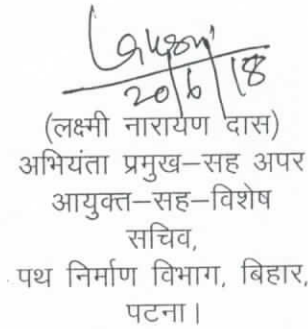 20/6/18
(लक्ष्मी नारायण दास)
अभियंता प्रमुख–सह अपर
आयुक्त–सह–विशेष
सचिव,
पथ निर्माण विभाग, बिहार,
पटना।